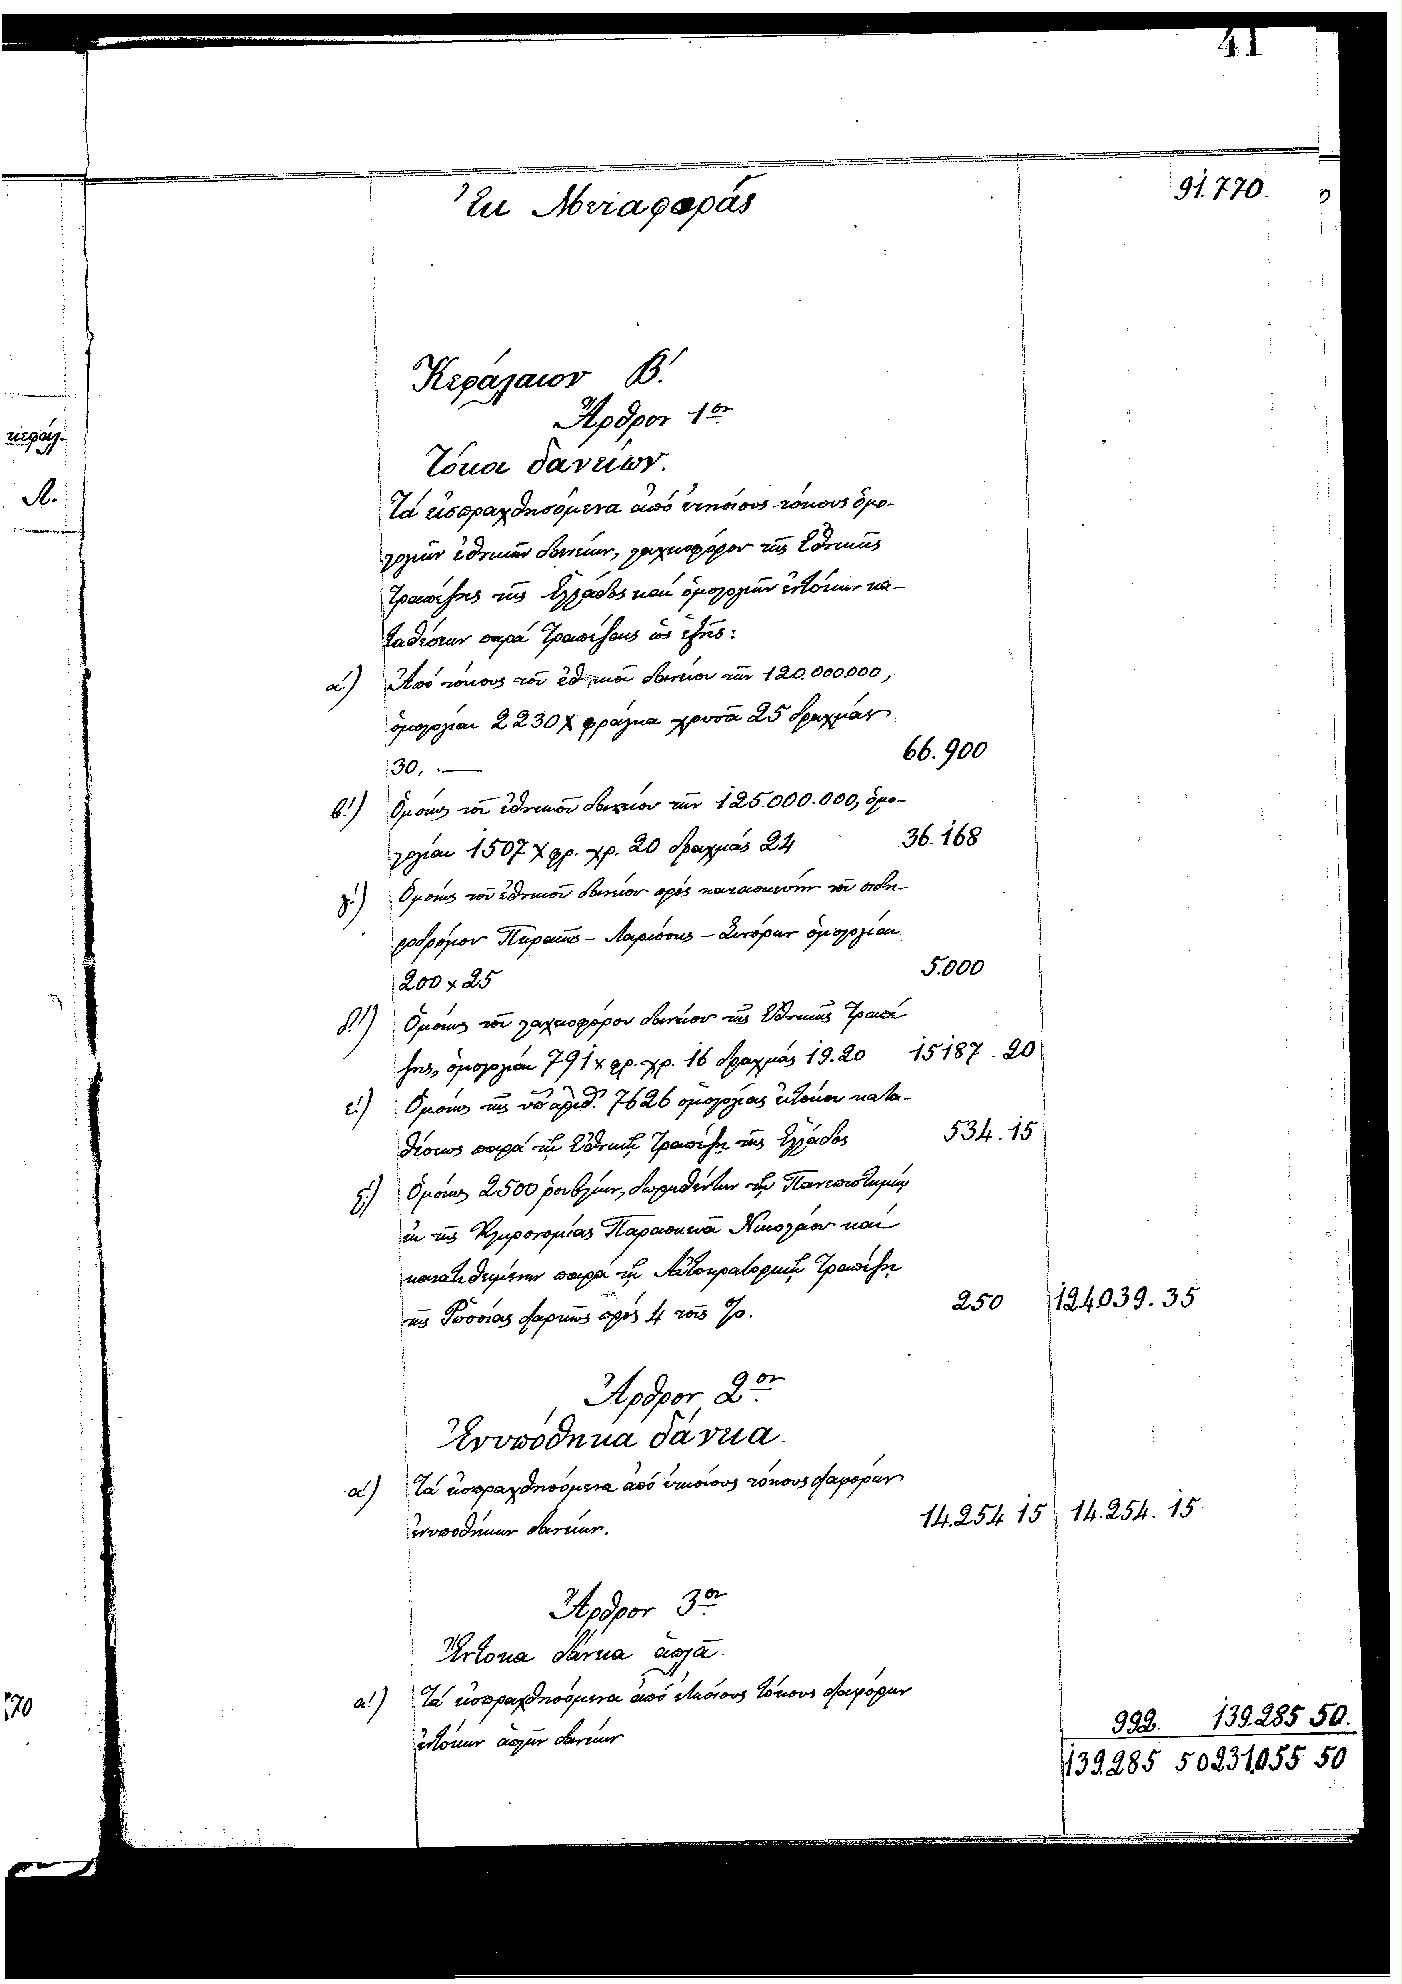 41
Ἐκ Μεταφορᾶς 91.770
Κεφάλαιον Β΄.
Ἄρθρον 1ον
Τόκοι δανείων.
Τά εἰσπραχθησόμενα ἀπό ἐτησίους τόκους ὁμο-
λογιῶν ἐθνικῶν δανείων, λαχειοφόρου τῆς Ἐθνικῆς
Τραπέζης τῆς Ἑλλάδος καί ὁμολογιῶν ἐντόκων κα-
ταθέσεων παρά Τραπέζαις ὡς ἑξῆς:
α΄) Ἀπό τόκους τοῦ ἐθνικοῦ δανείου τῶν 120.000.000,
ὁμολογίαι 2230 χ φράγκα χρυσᾶ 25 δραχμάς
30. — 66.900
β΄) Ὁμοίως τοῦ ἐθνικοῦ δανείου τῶν 125.000.000, ὁμο-
λογίαι 1507 χ φρ. χρ. 20 δραχμάς 24 36.168
γ΄) Ὁμοίως τοῦ ἐθνικοῦ δανείου πρός κατασκευήν τοῦ σιδη-
ροδρόμου Πειραιῶς - Λαρίσσης - Συνόρων ὁμολογίαι
200 χ 25 5.000
δ΄) Ὁμοίως τοῦ λαχειοφόρου δανείου τῆς Ἐθνικῆς Τραπέ
ζης, ὁμολογίαι 791 χ φρ. χρ. 16 δραχμάς 19.20 15187.20
ε΄) Ὁμοίως τῆς ὑπ' ἀριθ. 7626 ὁμολογίας ἐντόκου κατα-
θέσεως παρά τῇ Ἐθνικῇ Τραπέζῃ τῆς Ἑλλάδος 534.15
ς΄) Ὁμοίως 2500 ρουβλίων, δωρηθέντων τῷ Πανεπιστημίῳ
ἐκ τῆς Κληρονομίας Παρασκευᾶ Νικολάου καί
κατατεθειμένων παρά τῇ Αὐτοκρατορικῇ Τραπέζῃ
τῆς Ρωσσίας διαρκῶς πρός 4 τοῖς %. 250 124.039.35
Ἄρθρον 2ον
Ἐνυπόθηκα δάνεια.
α΄) Τά εἰσπραχθησόμενα ἀπό ἐτησίους τόκους διαφόρων
ἐνυποθήκων δανείων. 14.254 15 14.254.15
Ἄρθρον 3ον
Ἔντοκα δάνεια ἁπλᾶ.
α΄) Τά εἰσπραχθησόμενα ἀπό ἐτησίους τόκους διαφόρων
ἐντόκων ἁπλῶν δανείων 992. 139.285 50.
139.285 50 231.055 50
κεφάλ.
Λ.
70